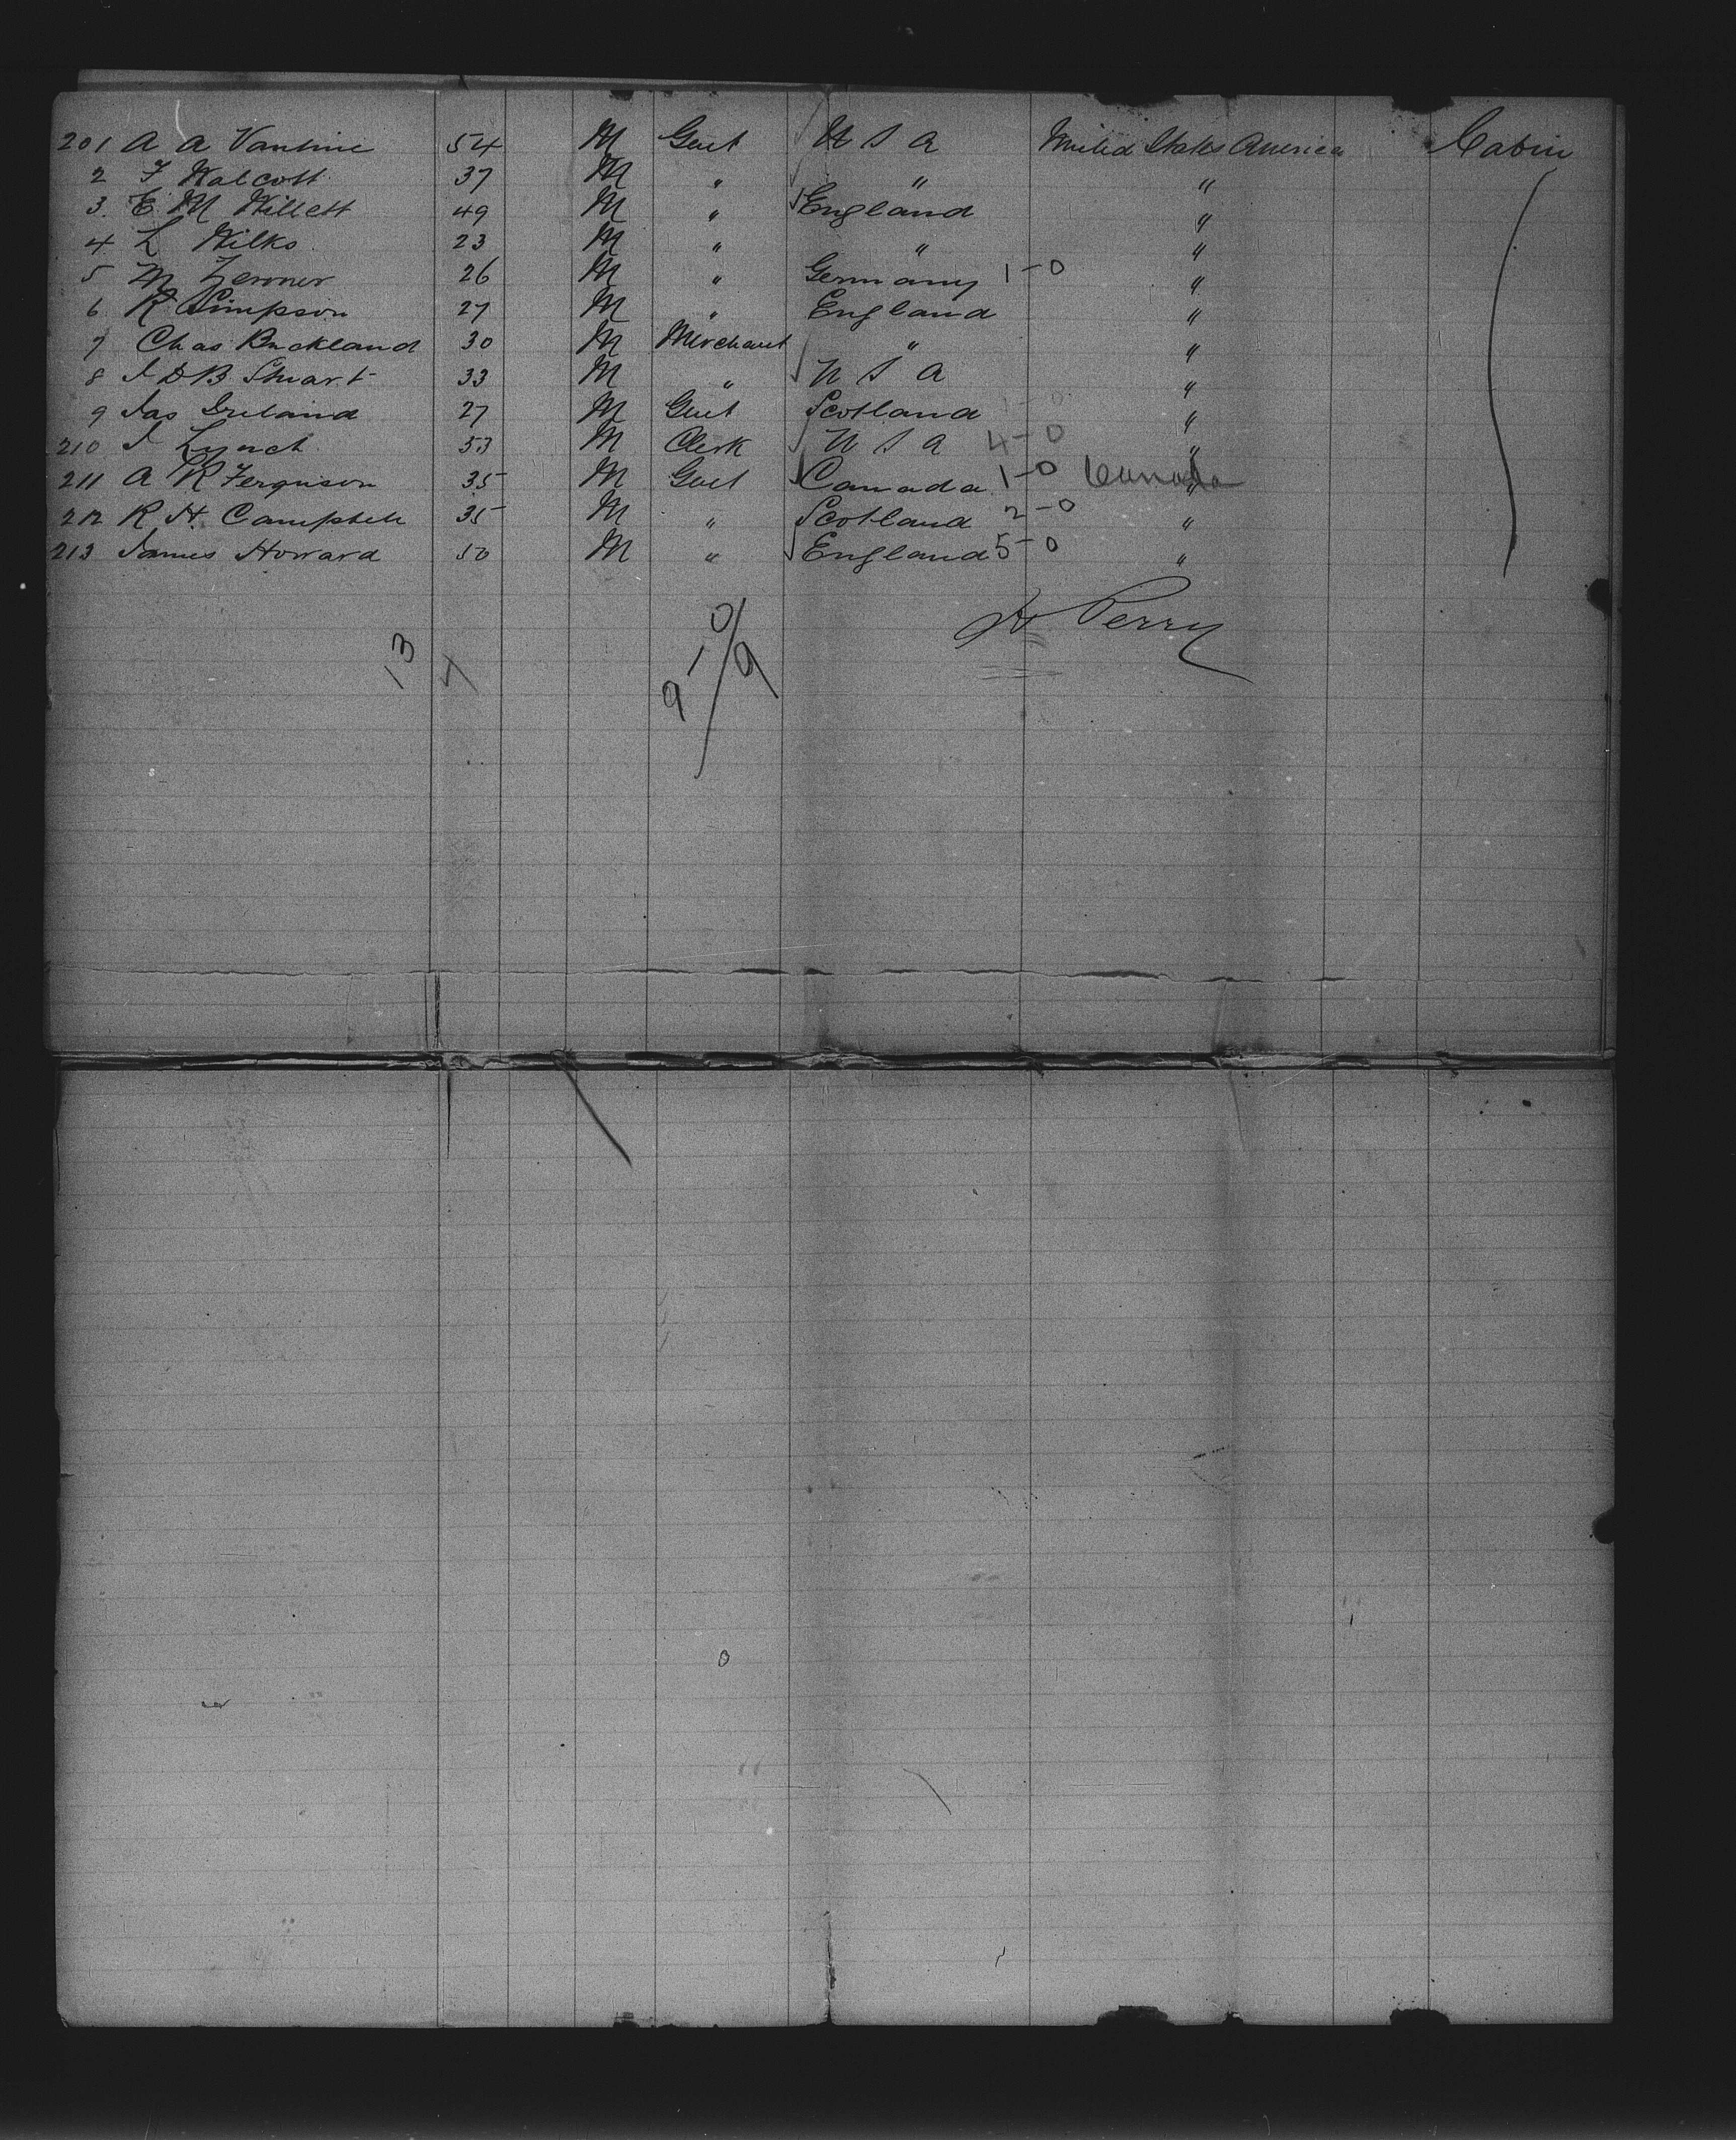 201 A A Vantine 54 M Gent U S A United States America Cabin
2 F Walcott 37 M " " "
3. E M Willett 49 M " England "
4 L Wilks 23 M " " "
5 M Zerner 26 M " Germany 1-0 "
6 R Simpson 27 M " England "
7 Chas Buckland 30 M Merchant " "
8 J D B Stuart 33 M " U S A "
9 Jas Ireland 27 M Gent Scotland 1-0 "
210 J Lynch 53 M Clerk U S A 4-0 "
211 A R Ferguson 35 M Gent Canada 1-0 Canada "
212 R H Campbell 35 M " Scotland 2-0 "
213 James Howard 50 M " England 5-0 "
H Perry
13
9-0/9